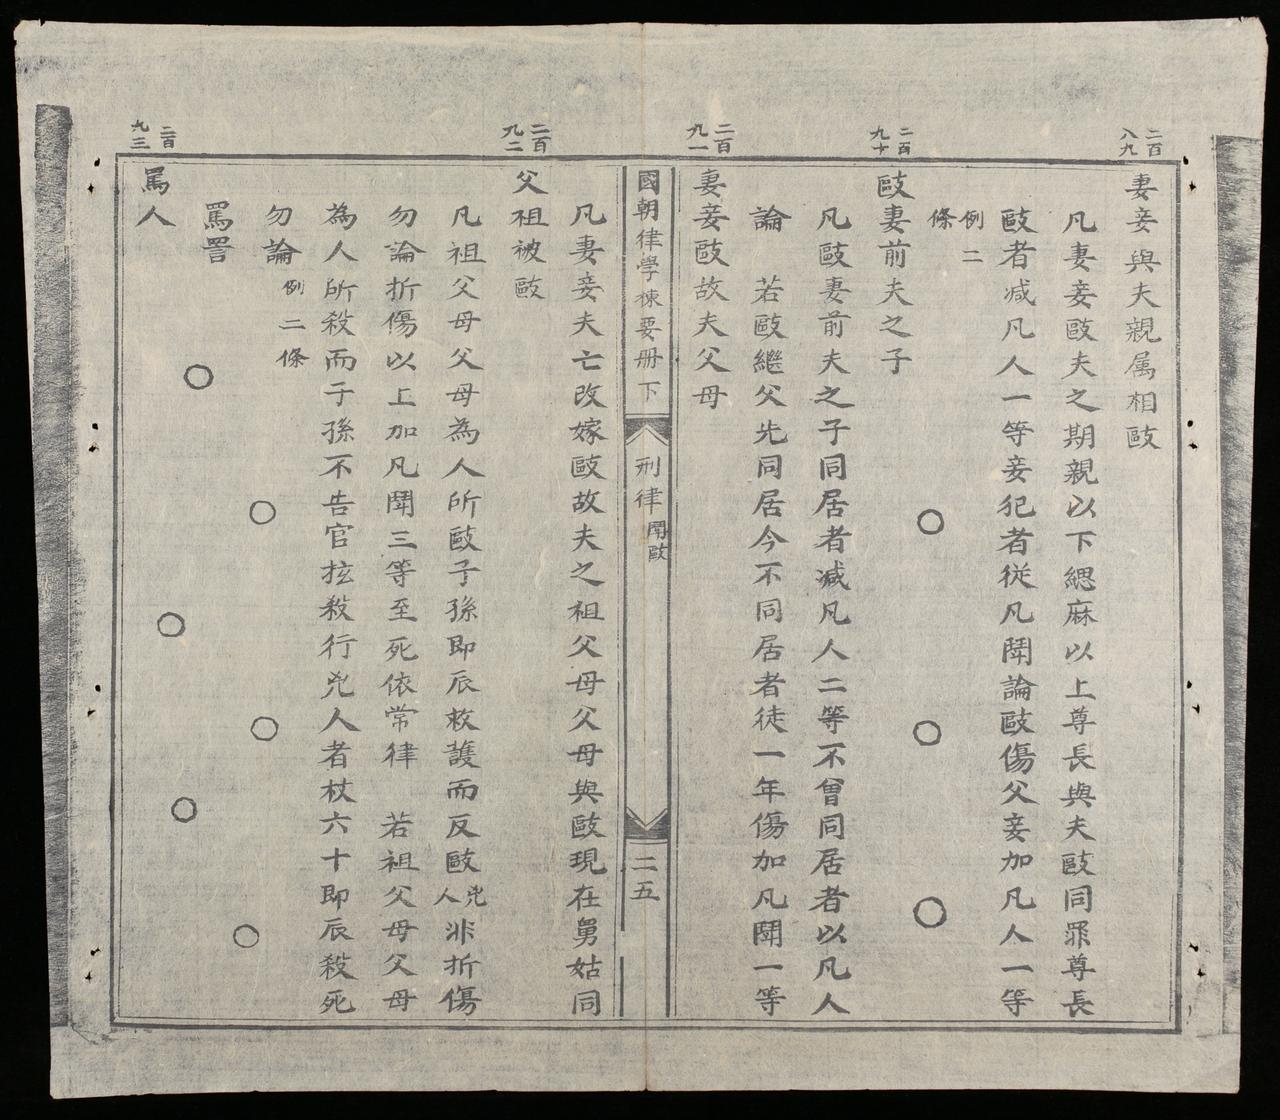 二百八九
妻妾與夫親属相毆
凡妻妾毆夫之期親以下緦麻以上尊長與夫毆同罪尊長
毆者减凡人一等妾犯者従凡鬪論毆傷父妾加凡人一等
例二條
二百九十
毆妻前夫之子
凡毆妻前夫之子同居者减凡人二等不曾同居者以凡人
論　若毆繼父先同居今不同居者徒一年傷加凡鬪一等
二百九一
妻妾毆故夫父母
國朝律學揀要册下
刑律鬪毆
二五
凡妻妾夫亡改嫁毆故夫之祖父母父母與毆現在舅姑同
二百九二
父祖被毆
凡祖父母父母為人所毆子孫即辰救護而反毆兇人非折傷
勿論折傷以上加凡鬪三等至死依常律　若祖父母父母
為人所殺而子孫不告官㨿殺行兇人者杖六十即辰殺死
勿論例二條
罵詈
二百九三
罵人